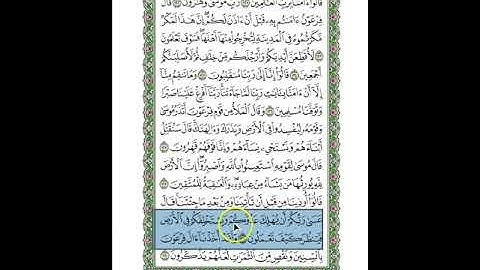 قَالُوٓا۟ ءَامَنَّا بِرَبِّ ٱلْعَٰلَمِينَ ١٢١ رَبِّ مُوسَىٰ وَهَٰرُونَ ١٢٢ قَالَ
فِرْعَوْنُ ءَامَنتُم بِهِۦ قَبْلَ أَنْ ءَاذَنَ لَكُمْ إِنَّ هَٰذَا لَمَكْرٌ
مَّكَرْتُمُوهُ فِى ٱلْمَدِينَةِ لِتُخْرِجُوا۟ مِنْهَآ أَهْلَهَا فَسَوْفَ تَعْلَمُونَ
١٢٣ لَأُقَطِّعَنَّ أَيْدِيَكُمْ وَأَرْجُلَكُم مِّنْ خِلَٰفٍ ثُمَّ لَأُصَلِّبَنَّكُمْ
أَجْمَعِينَ ١٢٤ قَالُوٓا۟ إِنَّآ إِلَىٰ رَبِّنَا مُنقَلِبُونَ ١٢٥ وَمَا تَنقِمُ مِنَّآ
إِلَّآ أَنْ ءَامَنَّا بِـَٔايَٰتِ رَبِّنَا لَمَّا جَآءَتْنَا رَبَّنَآ أَفْرِغْ عَلَيْنَا صَبْرًا
وَتَوَفَّنَا مُسْلِمِينَ ١٢٦ وَقَالَ ٱلْمَلَأُ مِن قَوْمِ فِرْعَوْنَ أَتَذَرُ مُوسَىٰ
وَقَوْمَهُۥ لِيُفْسِدُوا۟ فِى ٱلْأَرْضِ وَيَذَرَكَ وَءَالِهَتَكَ قَالَ سَنُقَتِّلُ
أَبْنَآءَهُمْ وَنَسْتَحْىِۦ نِسَآءَهُمْ وَإِنَّا فَوْقَهُمْ قَٰهِرُونَ ١٢٧
قَالَ مُوسَىٰ لِقَوْمِهِ ٱسْتَعِينُوا۟ بِٱللَّهِ وَٱصْبِرُوٓا۟ إِنَّ ٱلْأَرْضَ
لِلَّهِ يُورِثُهَا مَن يَشَآءُ مِنْ عِبَادِهِۦ وَٱلْعَٰقِبَةُ لِلْمُتَّقِينَ
١٢٨ قَالُوٓا۟ أُوذِينَا مِن قَبْلِ أَن تَأْتِيَنَا وَمِنۢ بَعْدِ مَا جِئْتَنَا قَالَ
عَسَىٰ رَبُّكُمْ أَن يُهْلِكَ عَدُوَّكُمْ وَيَسْتَخْلِفَكُمْ فِى ٱلْأَرْضِ
فَيَنظُرَ كَيْفَ تَعْمَلُونَ ١٢٩ وَلَقَدْ أَخَذْنَآ ءَالَ فِرْعَوْنَ
بِٱلسِّنِينَ وَنَقْصٍ مِّنَ ٱلثَّمَرَٰتِ لَعَلَّهُمْ يَذَّكَّرُونَ ١٣٠